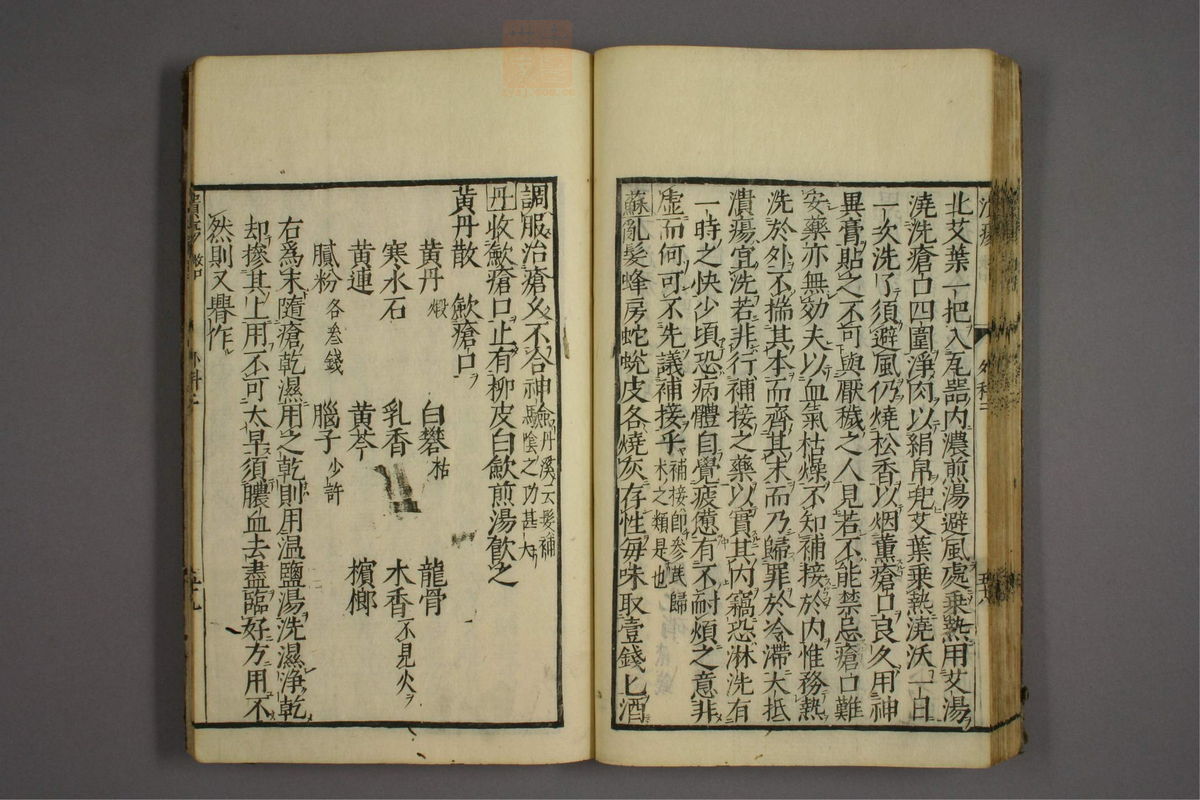 北艾葉一把入瓦器内濃煎湯避風處乗熱用艾湯
澆洗瘡口四圍淨肉以絹帛兠艾葉乗熱澆沃一日
一次洗了須避風仍燒松香以烟薫瘡口良久用神
異膏貼之不可與厭穢之人見若不能禁忌瘡口難
安藥亦無効夫以血氣枯燥不知補接於内惟務熱
洗於外不揣其本而齊其末而乃歸罪於冷滯大抵
潰瘍宜洗若非行補接之藥以實其内竊恐淋洗有
一時之快少頃恐病體自覺疲憊有不耐煩之意非
虚而何可不先議補接乎補接即參芪歸
术之類是也
蘇亂髮蜂房蛇蛻皮各燒灰存性毎味取壹錢匕酒
外科二
調服治瘡久不合神驗丹溪云髮補
陰之功甚大
丹收歛瘡口止有柳皮白歛煎湯飲之
黄丹散 歛瘡口
黄丹煅 白礬枯 龍骨
寒水石 乳香 木香不見火
黄連 黄芩 檳榔
膩粉各叁錢 腦子少許
右爲末隨瘡乾濕用之乾則用温鹽湯洗濕淨乾
却摻其上用不可太早須膿血去盡臨好方用不
然則又舉作
五十九